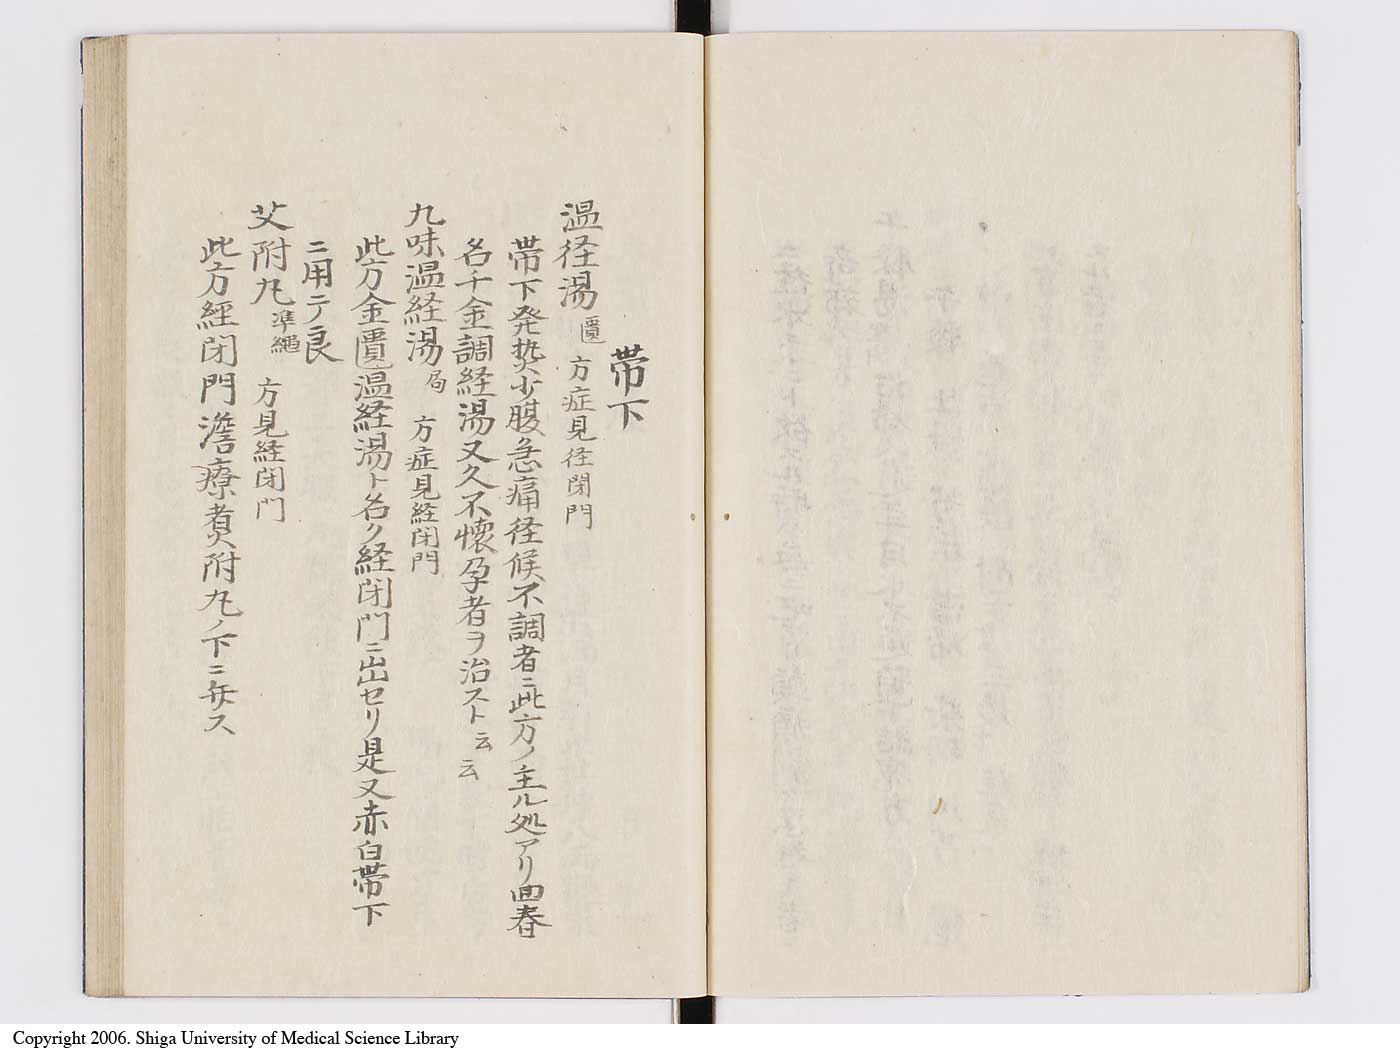 帯下
温径湯 匱 方症見径閉門
帯下発熱少腹急痛径候不調者ニ此方ノ主ル処アリ回春
名千金調経湯又久不懐孕者ヲ治スト云云
九味温経湯 局 方症見経閉門
此方金匱温経湯ト名ク経閉門ニ出セリ是又赤白帯下
ニ用テ良
艾附丸 準縄 方見経閉門
此方經閉門澹療煮附丸ノ下ニ弁ス
Copyright 2006. Shiga University of Medical Science Library